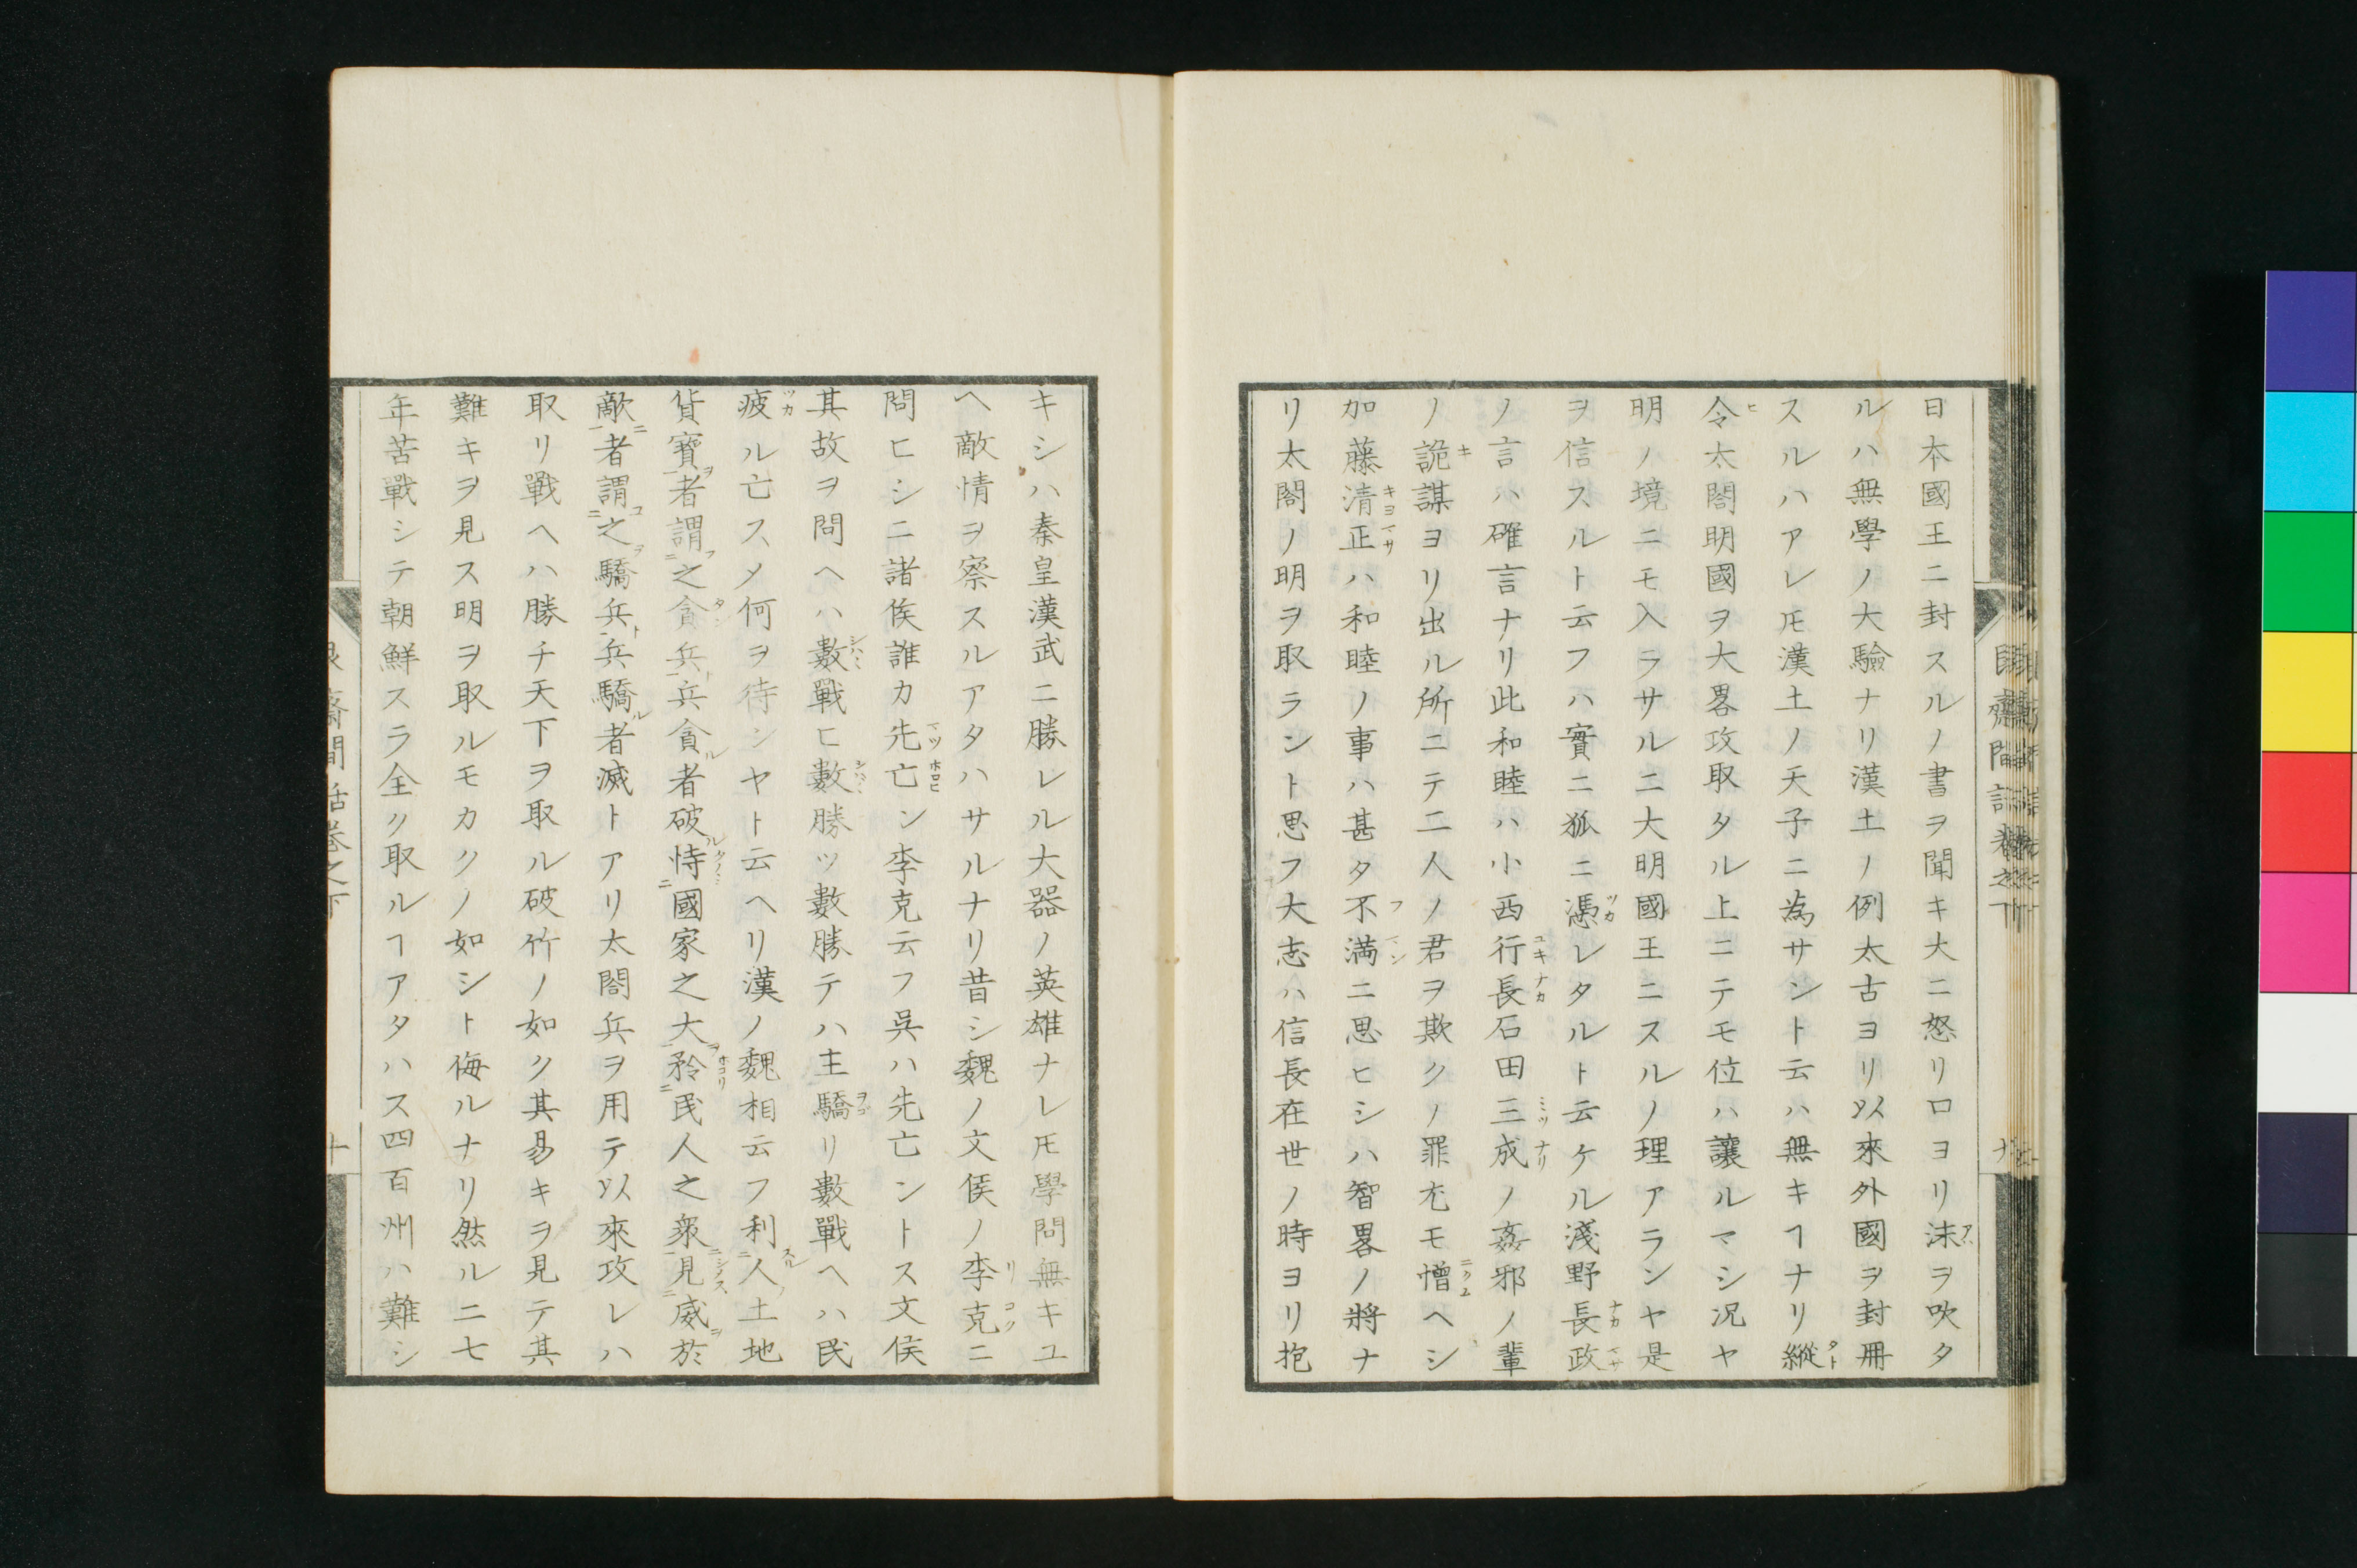 日本國王ニ封スルノ書ヲ聞キ大ニ怒リロヨリ沫ヲ吹タ
ルハ無學ノ大驗ナリ漢土ノ例太古ヨリ以來外國ヲ封冊
スルハアレ𪜈漢土ノ天子ニ為サント云ハ無キヿナリ縱
令太閤明國ヲ大畧攻取タル上ニテモ位ハ讓ルマシ况ヤ
明ノ境ニモ入ラサルニ大明國王ニスルノ理アランヤ是
ヲ信スルト云フハ實ニ狐ニ憑レタルト云ケル淺野長政
ノ言ハ確言ナリ此和睦ハ小西行長石田三成ノ姦邪ノ輩
ノ詭謀ヨリ出ル所ニテ二人ノ君ヲ欺クノ罪尤モ憎ヘシ
加藤清正ハ和睦ノ事ハ甚タ不満ニ思ヒシハ智畧ノ將ナ
リ太閤ノ明ヲ取ラント思フ大志ハ信長在世ノ時ヨリ抱
キシハ秦皇漢武ニ勝レル大器ノ英雄ナレ𪜈學問無キユ
ヘ敵情ヲ察スルアタハサルナリ昔シ魏ノ文侯ノ李克ニ
問ヒシニ諸侯誰カ先亡ン李克云フ吳ハ先亡ントス文侯
其故ヲ問ヘハ數戰ヒ數勝ツ數勝テハ主驕リ數戰ヘハ民
疲ル亡スメ何ヲ待ンヤト云ヘリ漢ノ魏相云フ利人土地
貨寶者謂之貪兵兵貪者破恃國家之大矜民人之衆見威於
敵者謂之驕兵兵驕者滅トアリ太閤兵ヲ用テ以來攻レハ
取リ戰ヘハ勝チ天下ヲ取ル破竹ノ如ク其易キヲ見テ其
難キヲ見ス明ヲ取ルモカクノ如シト侮ルナリ然ルニ七
年苦戰シテ朝鮮スラ全ク取ルヿアタハス四百州ハ難シ
齋閒話卷之下
十